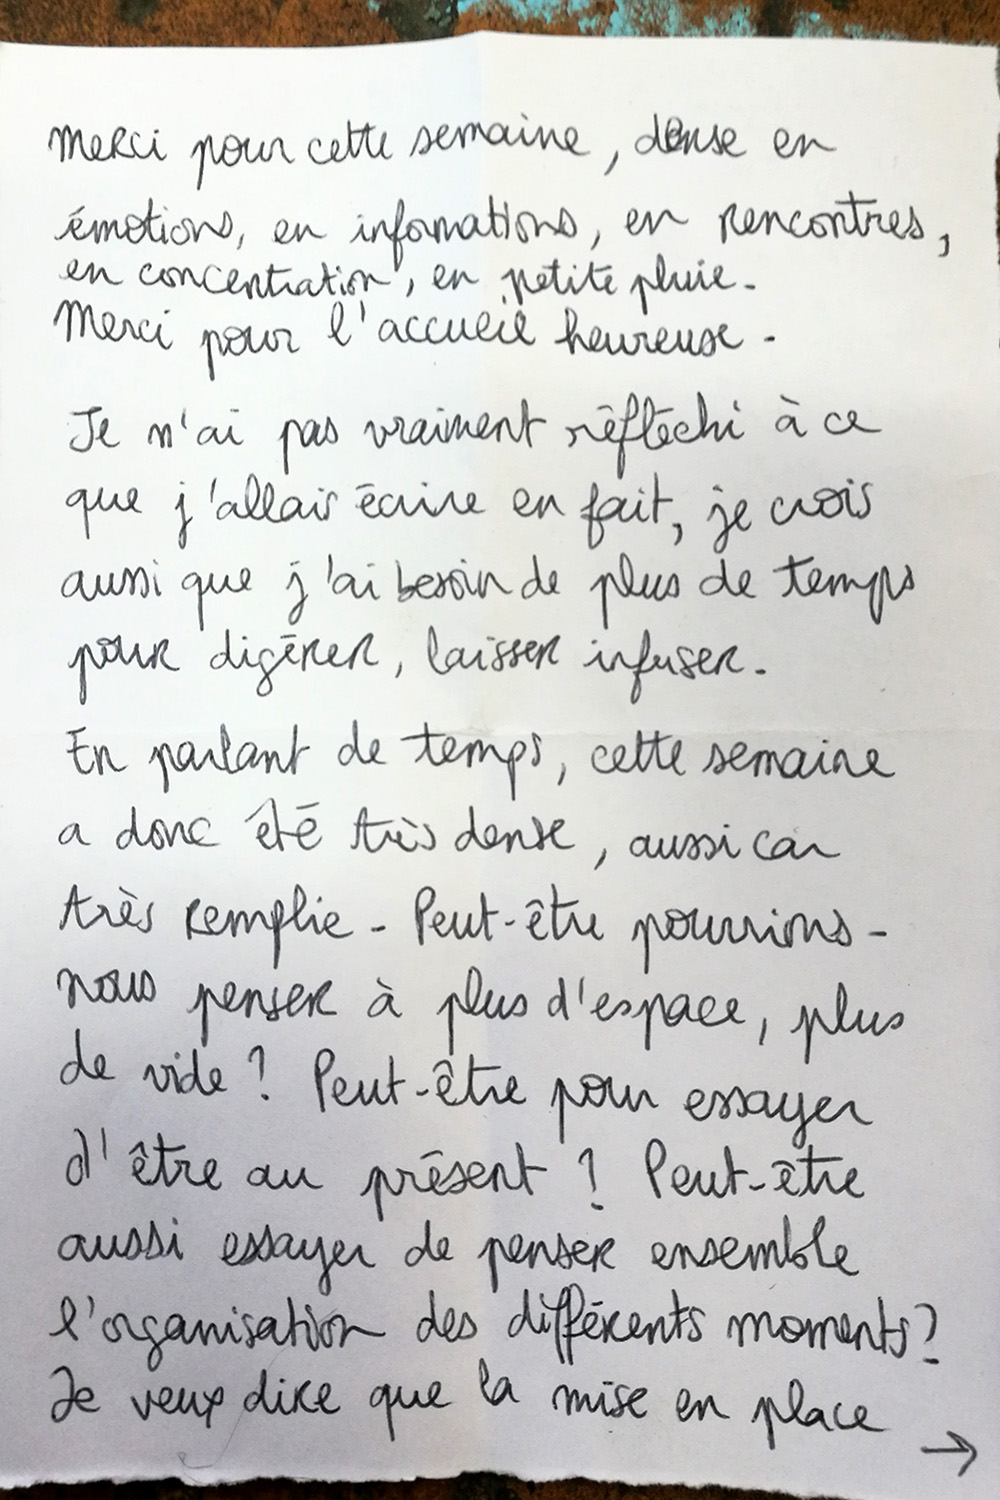 Merci pour cette semaine, dense en
émotions, en informations, en rencontres,
en concentration, en petite pluie.
Merci pour l'accueil heureuse.
Je n'ai pas vraiment réfléchi à ce
que j'allais écrire en fait, je crois
aussi que j'ai besoin de plus de temps
pour digérer, laisser infuser.
En parlant de temps, cette semaine
a donc été très dense, aussi car
très remplie - Peut-être pourrions-
nous penser à plus d'espace, plus
de vide ? Peut-être pour essayer
d'être au présent ? Peut-être
aussi essayer de penser ensemble
l'organisation des différents moments ?
Je veux dire que la mise en place
→